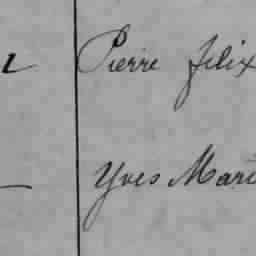 2 Pierre felix
— Yves Marie